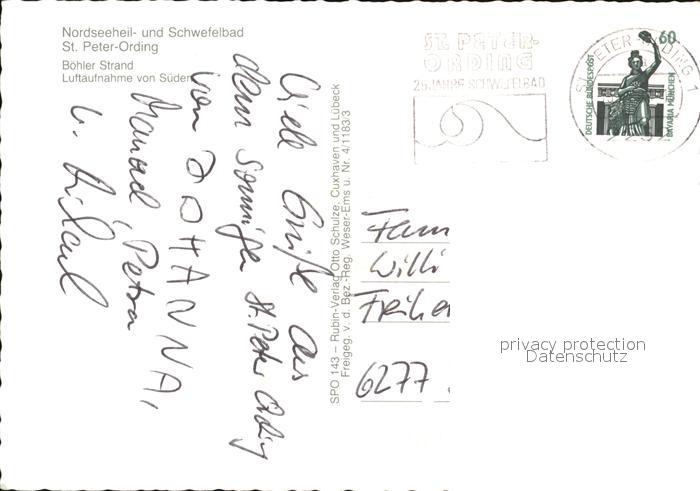 Nordseeheil- und Schwefelbad
St. Peter-Ording
Böhler Strand
Luftaufnahme von Süden
Viele Grüße aus
dem sonnigen St. Peter Ording
von JOHANNA,
Manuel, Petra
u. Michael
SPO 143 – Rubin-Verlag Otto Schulze, Cuxhaven und Lübeck
Freigeg. v. d. Bez.-Reg. Weser-Ems u. Nr. 4/1183/3
ST. PETER-
ORDING
25 JAHRE SCHWEFELBAD
60
DEUTSCHE BUNDESPOST
BAVARIA MÜNCHEN
ST PETER-ORDING 1
Fam
Willi
6277
privacy protection
Datenschutz